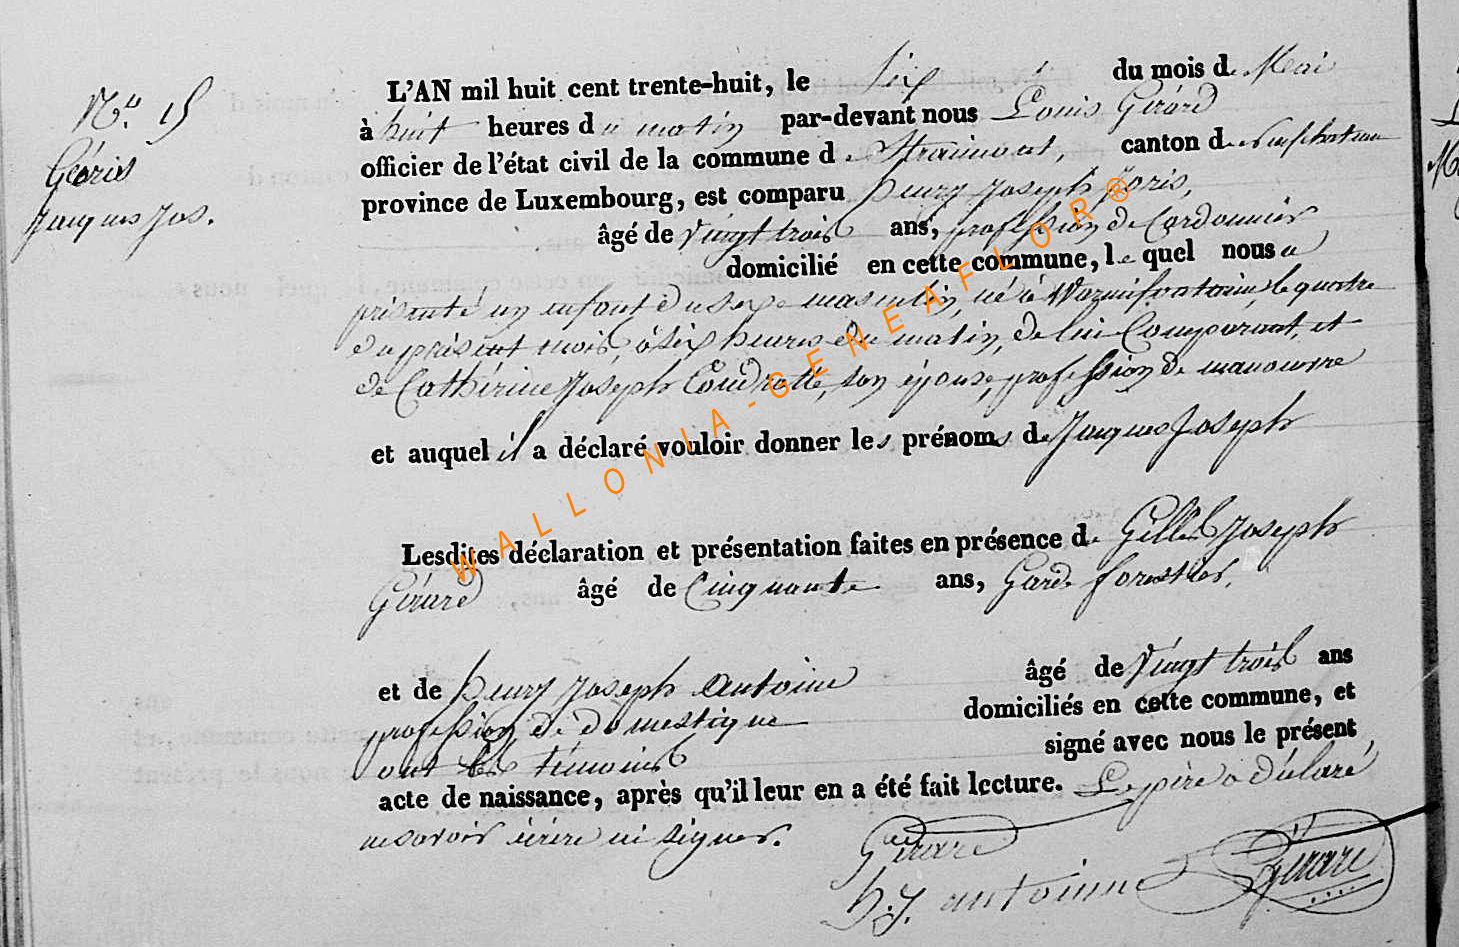 N.° 15
Géoris
Jacques Jos.
L'AN mil huit cent trente-huit, le six du mois de Mai
à huit heures du matin par-devant nous Louis Gérard
officier de l'état civil de la commune de Straimont, canton de Neufchateau
province de Luxembourg, est comparu henry Joseph Joris,
âgé de Vingt trois ans, profession de Cordonnier
domicilié en cette commune, lequel nous a
présenté un enfant du sexe masculin, né à Warmifontaine, le quatre
du présent mois, à six heures du matin, de lui Comparant, et
de Cathérine Joseph Coudrotte, son épouse, profession de manouvre
et auquel il a déclaré vouloir donner les prénoms de Jacques Joseph
Lesdites déclaration et présentation faites en présence de Gilles Joseph
Gérard âgé de Cinquante ans, Garde forestier,
et de henry Joseph Antoine âgé de Vingt trois ans
profession de domestique domiciliés en cette commune, et
ont les témoins signé avec nous le présent
acte de naissance, après qu'il leur en a été fait lecture. Le père a déclaré
ne savoir écrire ni signer.
Gérard
h. J. antoine Gérard
WALLONIA-GENEAFLOR®